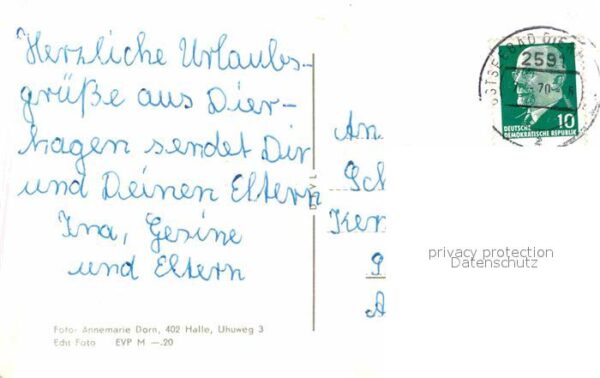 Herzliche Urlaubs-
grüße aus Dier-
hagen sendet Dir
und Deinen Eltern
Ina, Gesine
und Eltern
Foto: Annemarie Dorn, 402 Halle, Uhuweg 3
Echt Foto EVP M —.20
An
OSTSEEBAD
2591
70
10
DEUTSCHE
DEMOKRATISCHE REPUBLIK
privacy protection
Datenschutz